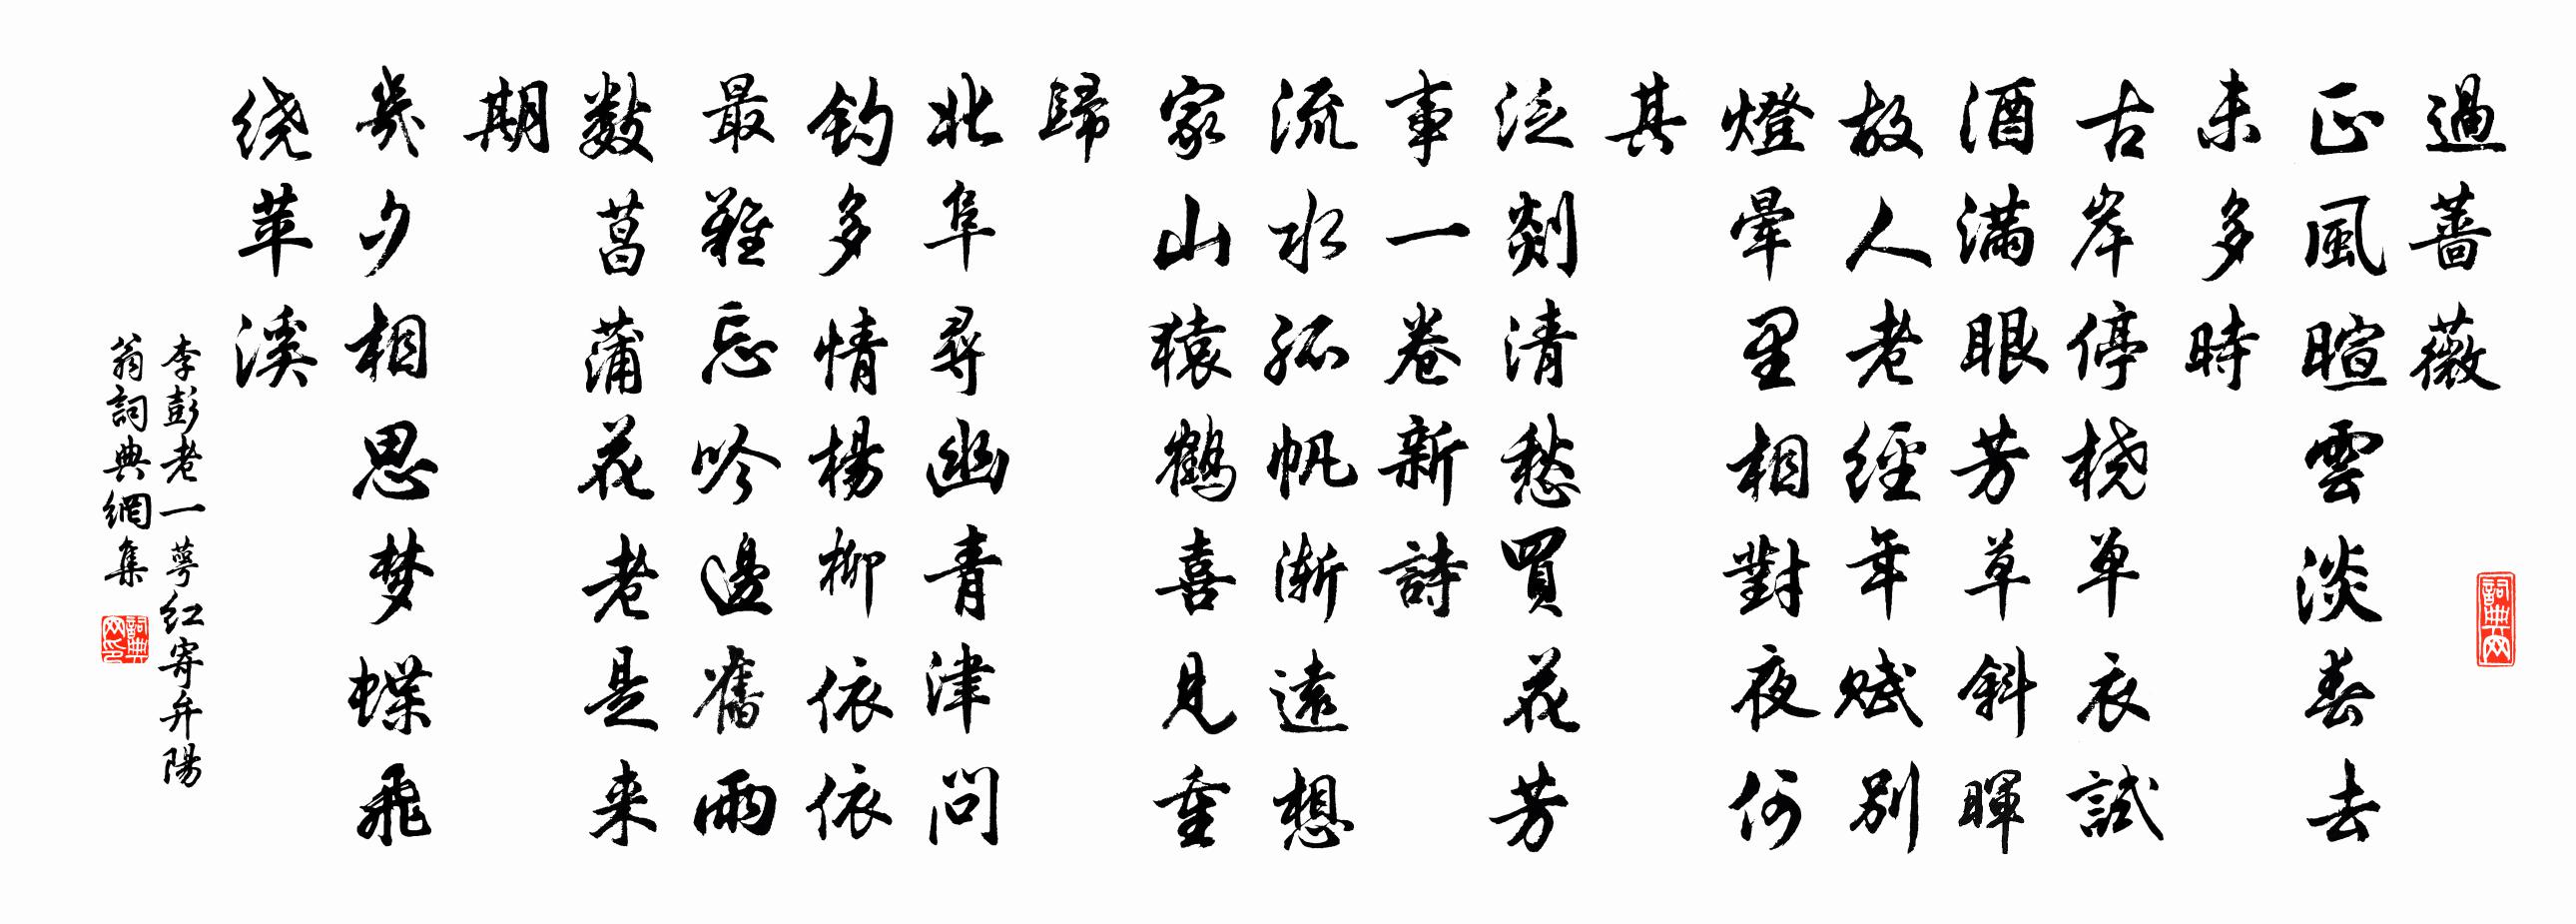 過薔薇
正風暄雲淡春去
未多時
古岸停桡单衣試
酒滿眼芳草斜暉
故人老經年赋别
燈暈里相對夜何
其
泛剡清愁買花芳
事一卷新詩
流水孤帆渐遠想
家山猿鶴喜見重
歸
北阜尋幽青津問
钓多情楊柳依依
最難忘吟邊舊雨
数菖蒲花老是来
期
幾夕相思梦蝶飛
绕苹溪
李彭老一萼红寄弁陽
翁詞典網集
詞典网
詞典网印